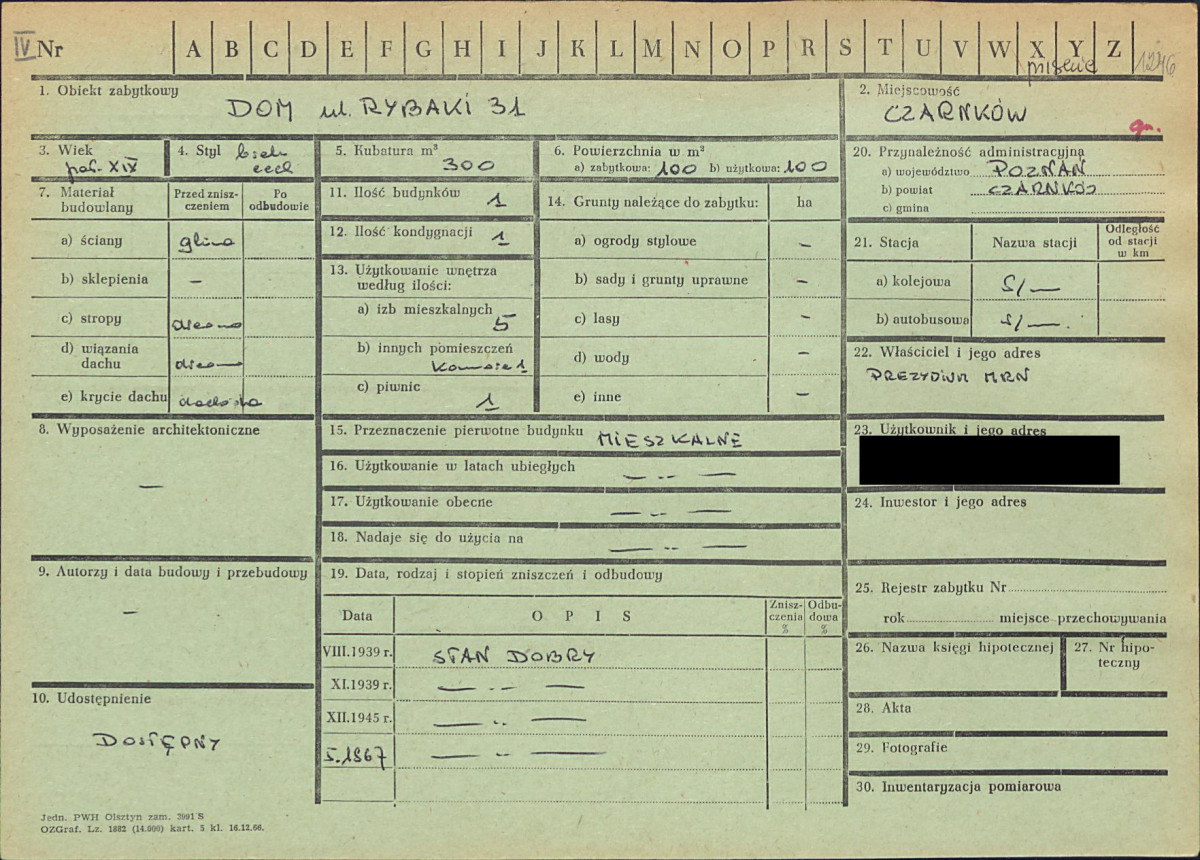 IV Nr A B C D E F G H I J K L M N O P R S T U V W X Y Z 1246
1. Obiekt zabytkowy DOM ul. RYBAKI 31
2. Miejscowość CZARNKÓW
gm.
3. Wiek poł. XIX
4. Styl
5. Kubatura m³ 300
6. Powierzchnia w m²
a) zabytkowa: 100 b) użytkowa: 100
7. Materiał budowlany
Przed zniszczeniem
Po odbudowie
a) ściany glina
b) sklepienia –
c) stropy drewno
d) wiązania dachu drewno
e) krycie dachu dachówka
8. Wyposażenie architektoniczne
—
9. Autorzy i data budowy i przebudowy
—
10. Udostępnienie
DOSTĘPNY
11. Ilość budynków 1
12. Ilość kondygnacji 1
13. Użytkowanie wnętrza według ilości:
a) izb mieszkalnych 5
b) innych pomieszczeń
1
c) piwnic 1
14. Grunty należące do zabytku: ha
a) ogrody stylowe –
b) sady i grunty uprawne –
c) lasy –
d) wody –
e) inne –
15. Przeznaczenie pierwotne budynku MIESZKALNE
16. Użytkowanie w latach ubiegłych — .. —
17. Użytkowanie obecne — .. —
18. Nadaje się do użycia na — .. —
19. Data, rodzaj i stopień zniszczeń i odbudowy
Data OPIS Zniszczenia % Odbudowa %
VIII.1939 r. STAN DOBRY
XI.1939 r. — .. —
XII.1945 r. — .. —
5.1967 — .. —
20. Przynależność administracyjną
a) województwo POZNAŃ
b) powiat CZARNKÓW
c) gmina
21. Stacja Nazwa stacji Odległość od stacji w km
a) kolejowa S/—
b) autobusowa S/—.
22. Właściciel i jego adres
PREZYDIUM MRN
23. Użytkownik i jego adres
24. Inwestor i jego adres
25. Rejestr zabytku Nr
rok miejsce przechowywania
26. Nazwa księgi hipotecznej
27. Nr hipoteczny
28. Akta
29. Fotografie
30. Inwentaryzacja pomiarowa
Jedn. PWH Olsztyn zam. 2091 S
OZGraf. Lz. 1882 (14.000) kart. 5 kl. 16.12.66.